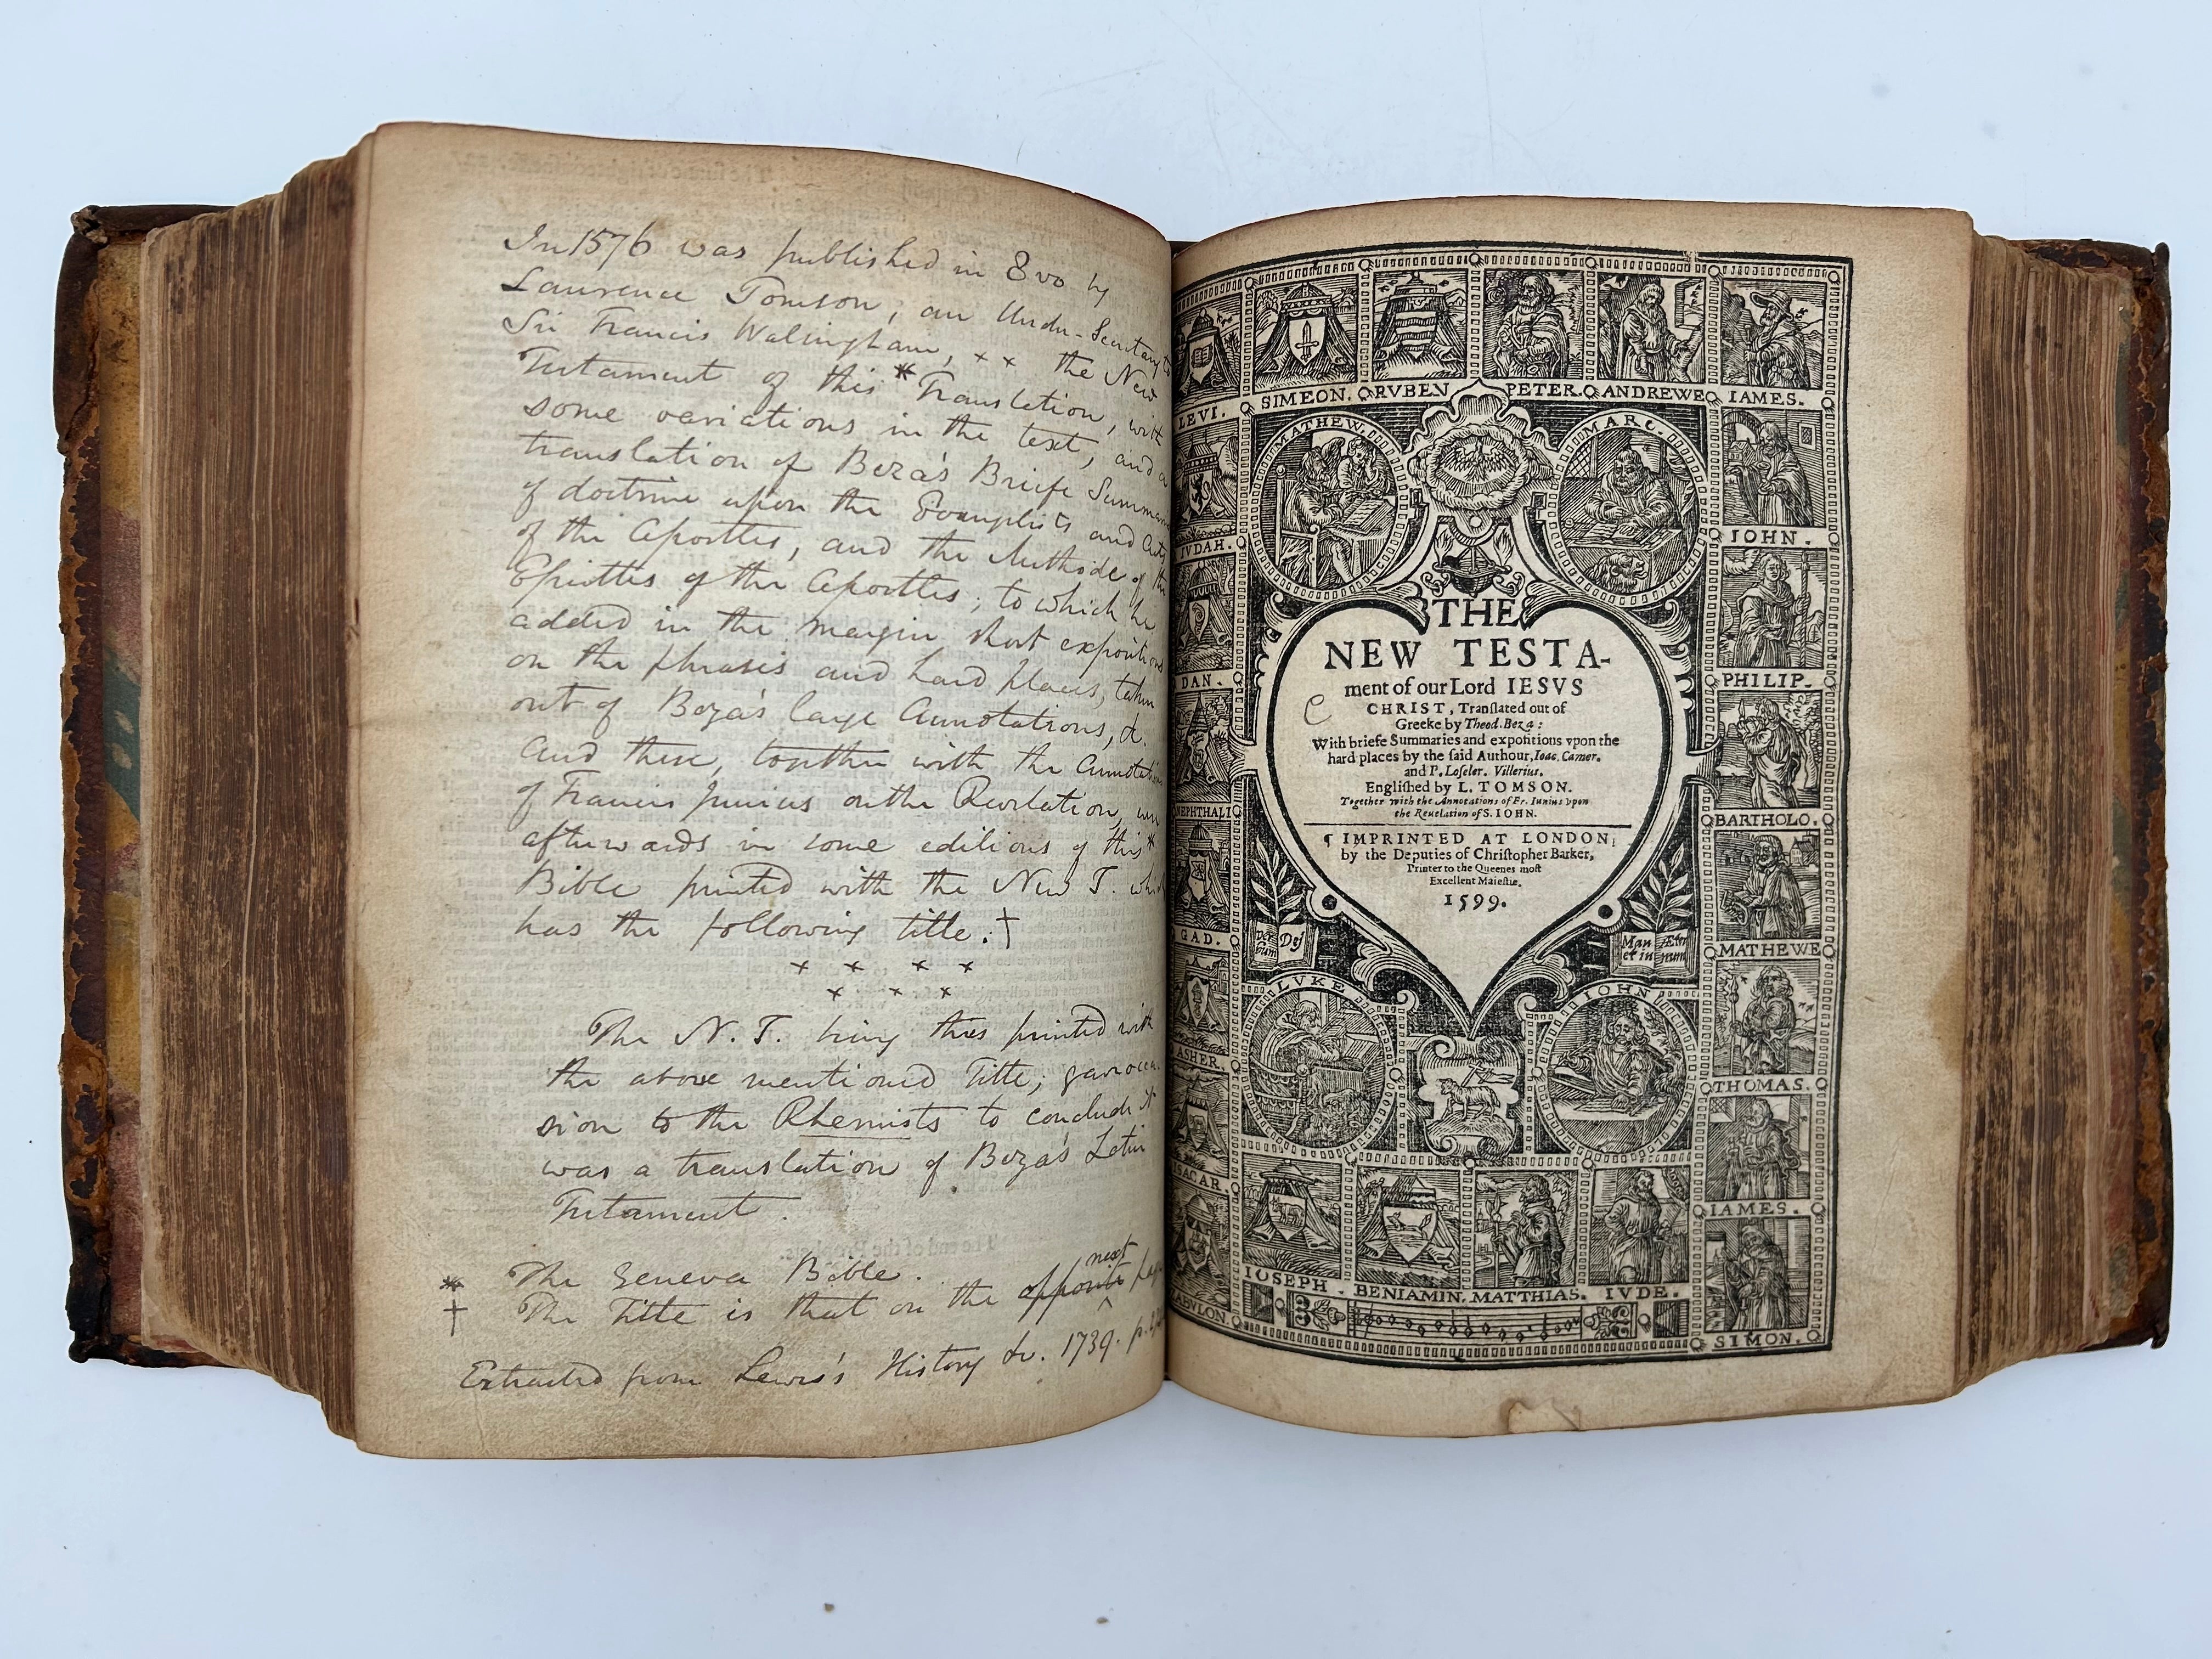 In 1576 was published in 8vo by
Laurence Tomson, an Under-Secretary to
Sir Francis Walsingham, × × the New
Testament of this * Translation, with
some variations in the text, and a
translation of Beza's Briefe Summaries
of doctrine upon the Evangelists and Acts
of the Apostles, and the Methode of the
Epistles of the Apostles; to which he
added in the margin short expositions
on the phrases and hard places, taken
out of Beza's large Annotations, &.
And these, together with the Annotations
of Francis Junius on the Revelation, were
afterwards in some editions of this *
Bible printed with the New T. which
has the following title. †
× × × ×
× × ×
The N. T. being thus printed with
the above mentioned Title; gave occa-
sion to the Rhemists to conclude it
was a translation of Beza's Latin
Testament.
* The Geneva Bible.
next
† The Title is that on the opposite page
Extracted from Lewis's History &c. 1739. p.
LEVI. SIMEON. RVBEN PETER. ANDREWE IAMES.
MATHEW. MARC.
IVDAH. IOHN.
DAN. PHILIP.
NEPHTHALI BARTHOLO.
GAD. MATHEWE
ASHER. THOMAS.
ISACAR. IAMES.
ZABVLON. SIMON.
THE
NEW TESTA-
ment of our Lord IESVS
CHRIST, Tranſlated out of
Greeke by Theod. Beza:
With briefe Summaries and expoſitions vpon the
hard places by the ſaid Authour, Ioac. Camer.
and P. Loſeler. Villerius.
Engliſhed by L. TOMSON.
Together with the Annotations of Fr. Iunius vpon
the Reuelation of S. IOHN.
¶ IMPRINTED AT LONDON,
by the Deputies of Chriſtopher Barker,
Printer to the Queenes moſt
Excellent Maieſtie.
1599.
Ver Dei
bum
Man Æter
et in num
LVKE IOHN
IOSEPH. BENIAMIN. MATTHIAS. IVDE.